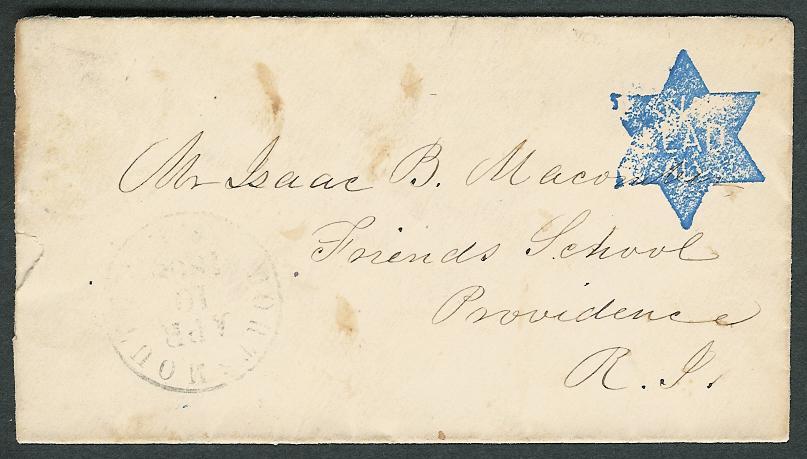 Mr Isaac B. Macomber
Friends School
Providence
R. I.
APR
10